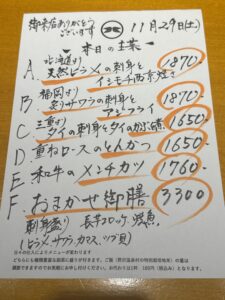 御来店ありがとうございます
11月29日(土)
本日の主菜
A. 北海道より
天然ヒラメの刺身と
イシモチ西京焼き 1870-
B 福岡より
炙りサワラの刺身と
アジフライ 1870-
C 三重より
タイの刺身とタイのかぶと煮 1650-
D 重ねロースのとんかつ 1650-
E 和牛のメンチカツ 1760-
F おまかせ御膳 3300
刺身盛り 長芋コロッケ、煮魚
(ヒラメ、サワラ、カマス、ツブ貝)
日々の仕入によりメニューが変わります